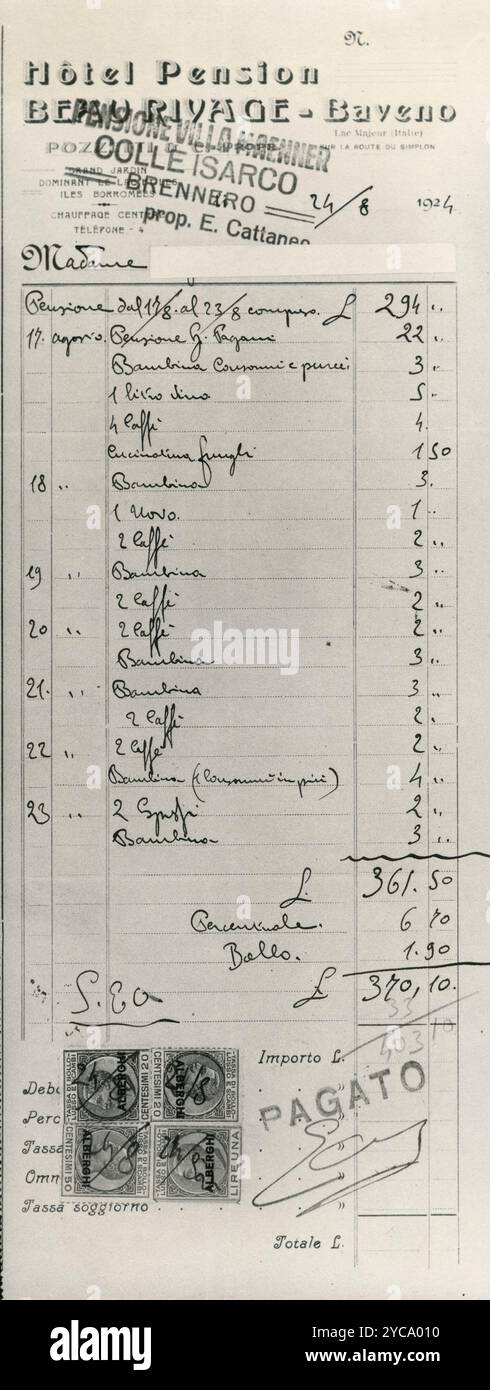 N.
Hôtel Pension
BEAU RIVAGE - Baveno
Lac Majeur (Italie)
SUR LA ROUTE DU SIMPLON
PENSIONE VILLA MAENNER
COLLE ISARCO
BRENNERO
prop. E. Cattaneo
GRAND JARDIN
DOMINANT LE
ILES BORROMÉES
CHAUFFAGE CENT
TÉLÉFONE - 4
24/8 1924.
Madame
Pensione dal 17/8. al 23/8 compreso. £ 294 "
17. agosto. Pensione G. Pagani 22 "
Bambina Consommé e 3 "
1 litro vino 5 "
4 Caffè 4.
funghi 1 50
18 " Bambina 3.
1 Uovo. 1 "
2 Caffè 2 "
19 " Bambina 3 "
2 Caffè 2 "
20 " 2 Caffè 2 "
Bambina 3 "
21. " Bambina 3 "
2 Caffè 2.
22 " 2 Caffè 2 "
Bambina 4 "
23 " 2 2 "
Bambina 3 "
£. 361.50
Percentuale. 6 70
Bollo. 1.90
£ 370,10.
S. E O
33
403 10
Importo £.
PAGATO
Debo
Perc
Tassa
Omn
Tassa soggiorno
Totale £.
ALBERGHI
CENTESIMI 20
ALBERGHI
CENTESIMI 20
CENTESIMI 50
ALBERGHI
ALBERGHI
LIRE UNA
alamy
Image ID: 2YCA010
www.alamy.com